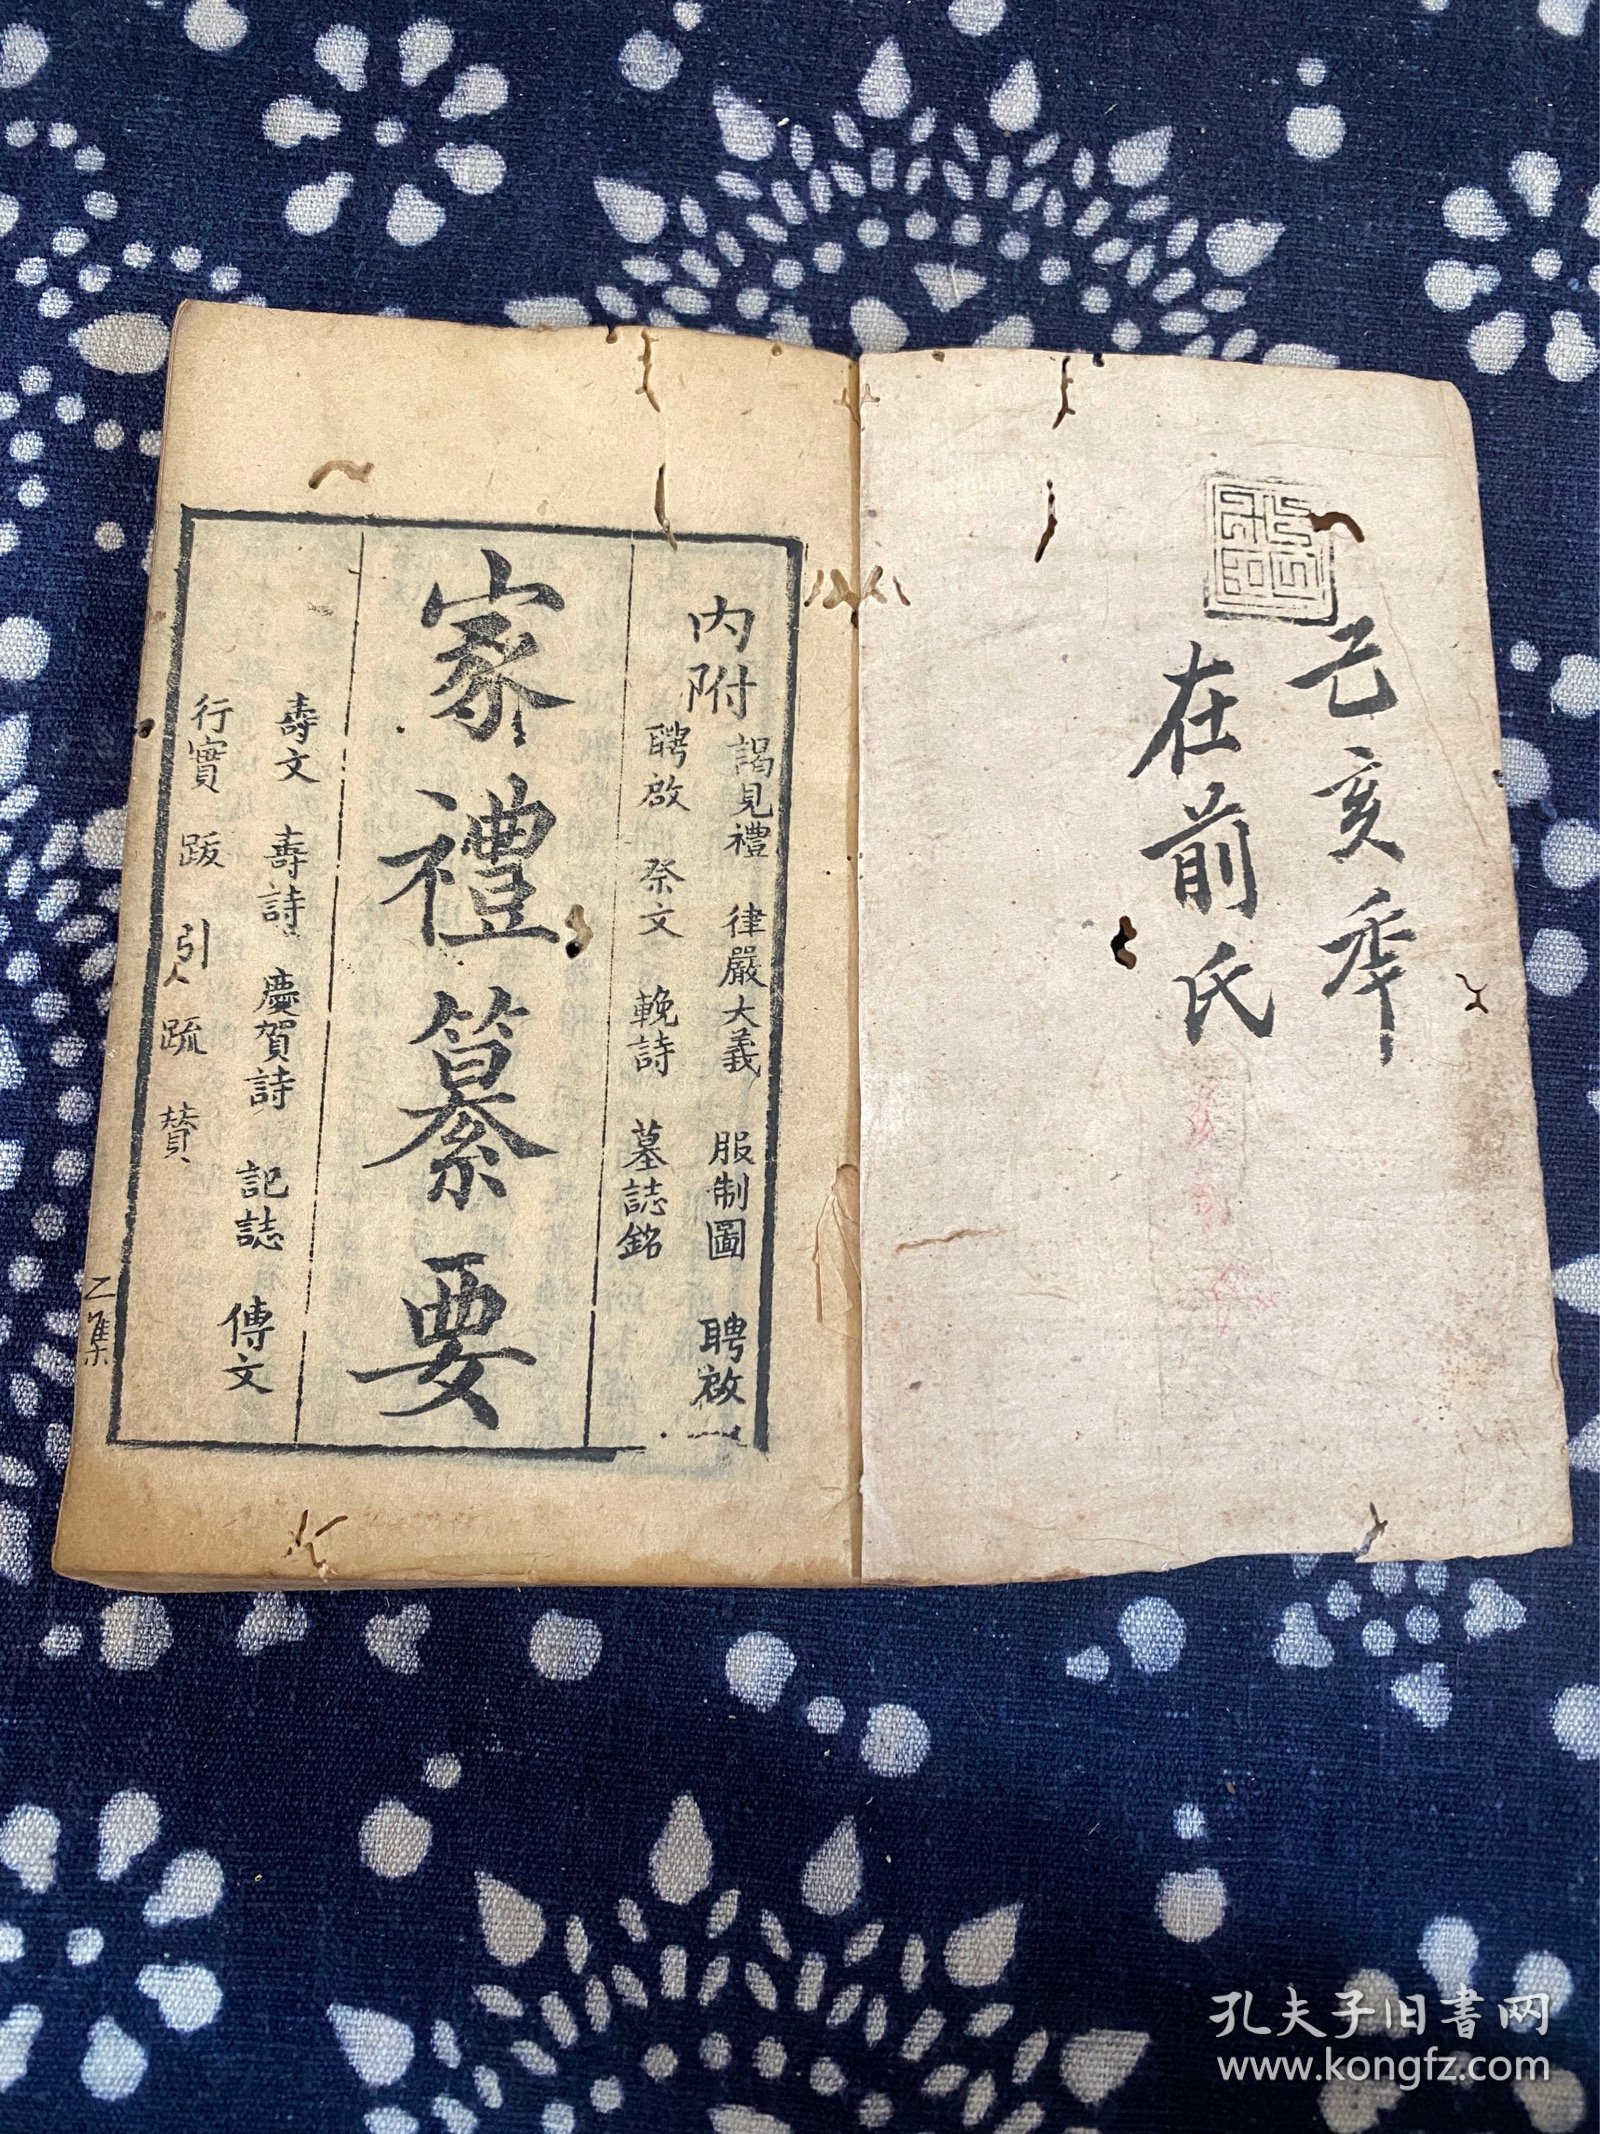 己亥年
在前氏
內附
謁見禮 律嚴大義 服制圖 聘啟
聘啟 祭文 輓詩 墓誌銘
家禮纂要
壽文 壽詩 慶賀詩 記誌 傳文
行實 跋 引 疏 贊
乙集
孔夫子旧书网
www.kongfz.com